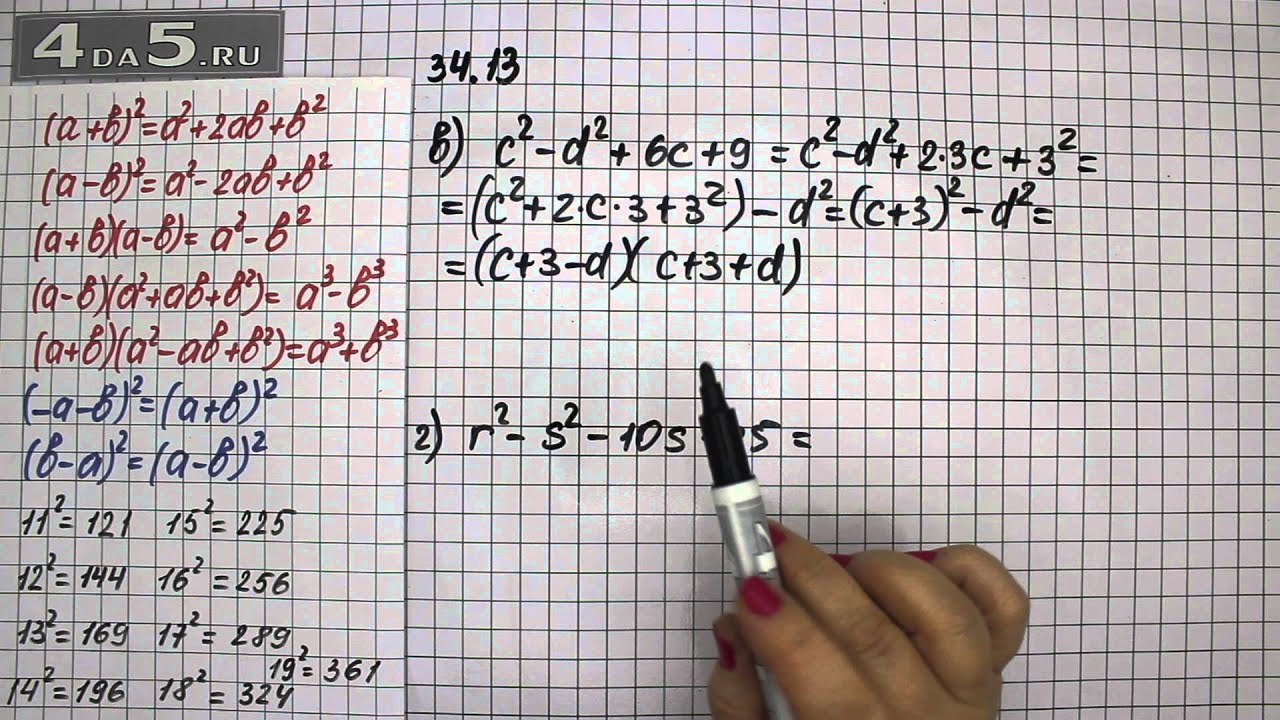 4DA5.RU
(a+b)²=a²+2ab+b²
(a-b)²=a²-2ab+b²
(a+b)(a-b)=a²-b²
(a-b)(a²+ab+b²)=a³-b³
(a+b)(a²-ab+b²)=a³+b³
(-a-b)²=(a+b)²
(b-a)²=(a-b)²
11²=121 15²=225
12²=144 16²=256
13²=169 17²=289
19²=361
14²=196 18²=324
34.13
в) c²-d²+6c+9=c²-d²+2·3c+3²=
=(c²+2·c·3+3²)-d²=(c+3)²-d²=
=(c+3-d)(c+3+d)
г) r²-s²-10s 5=